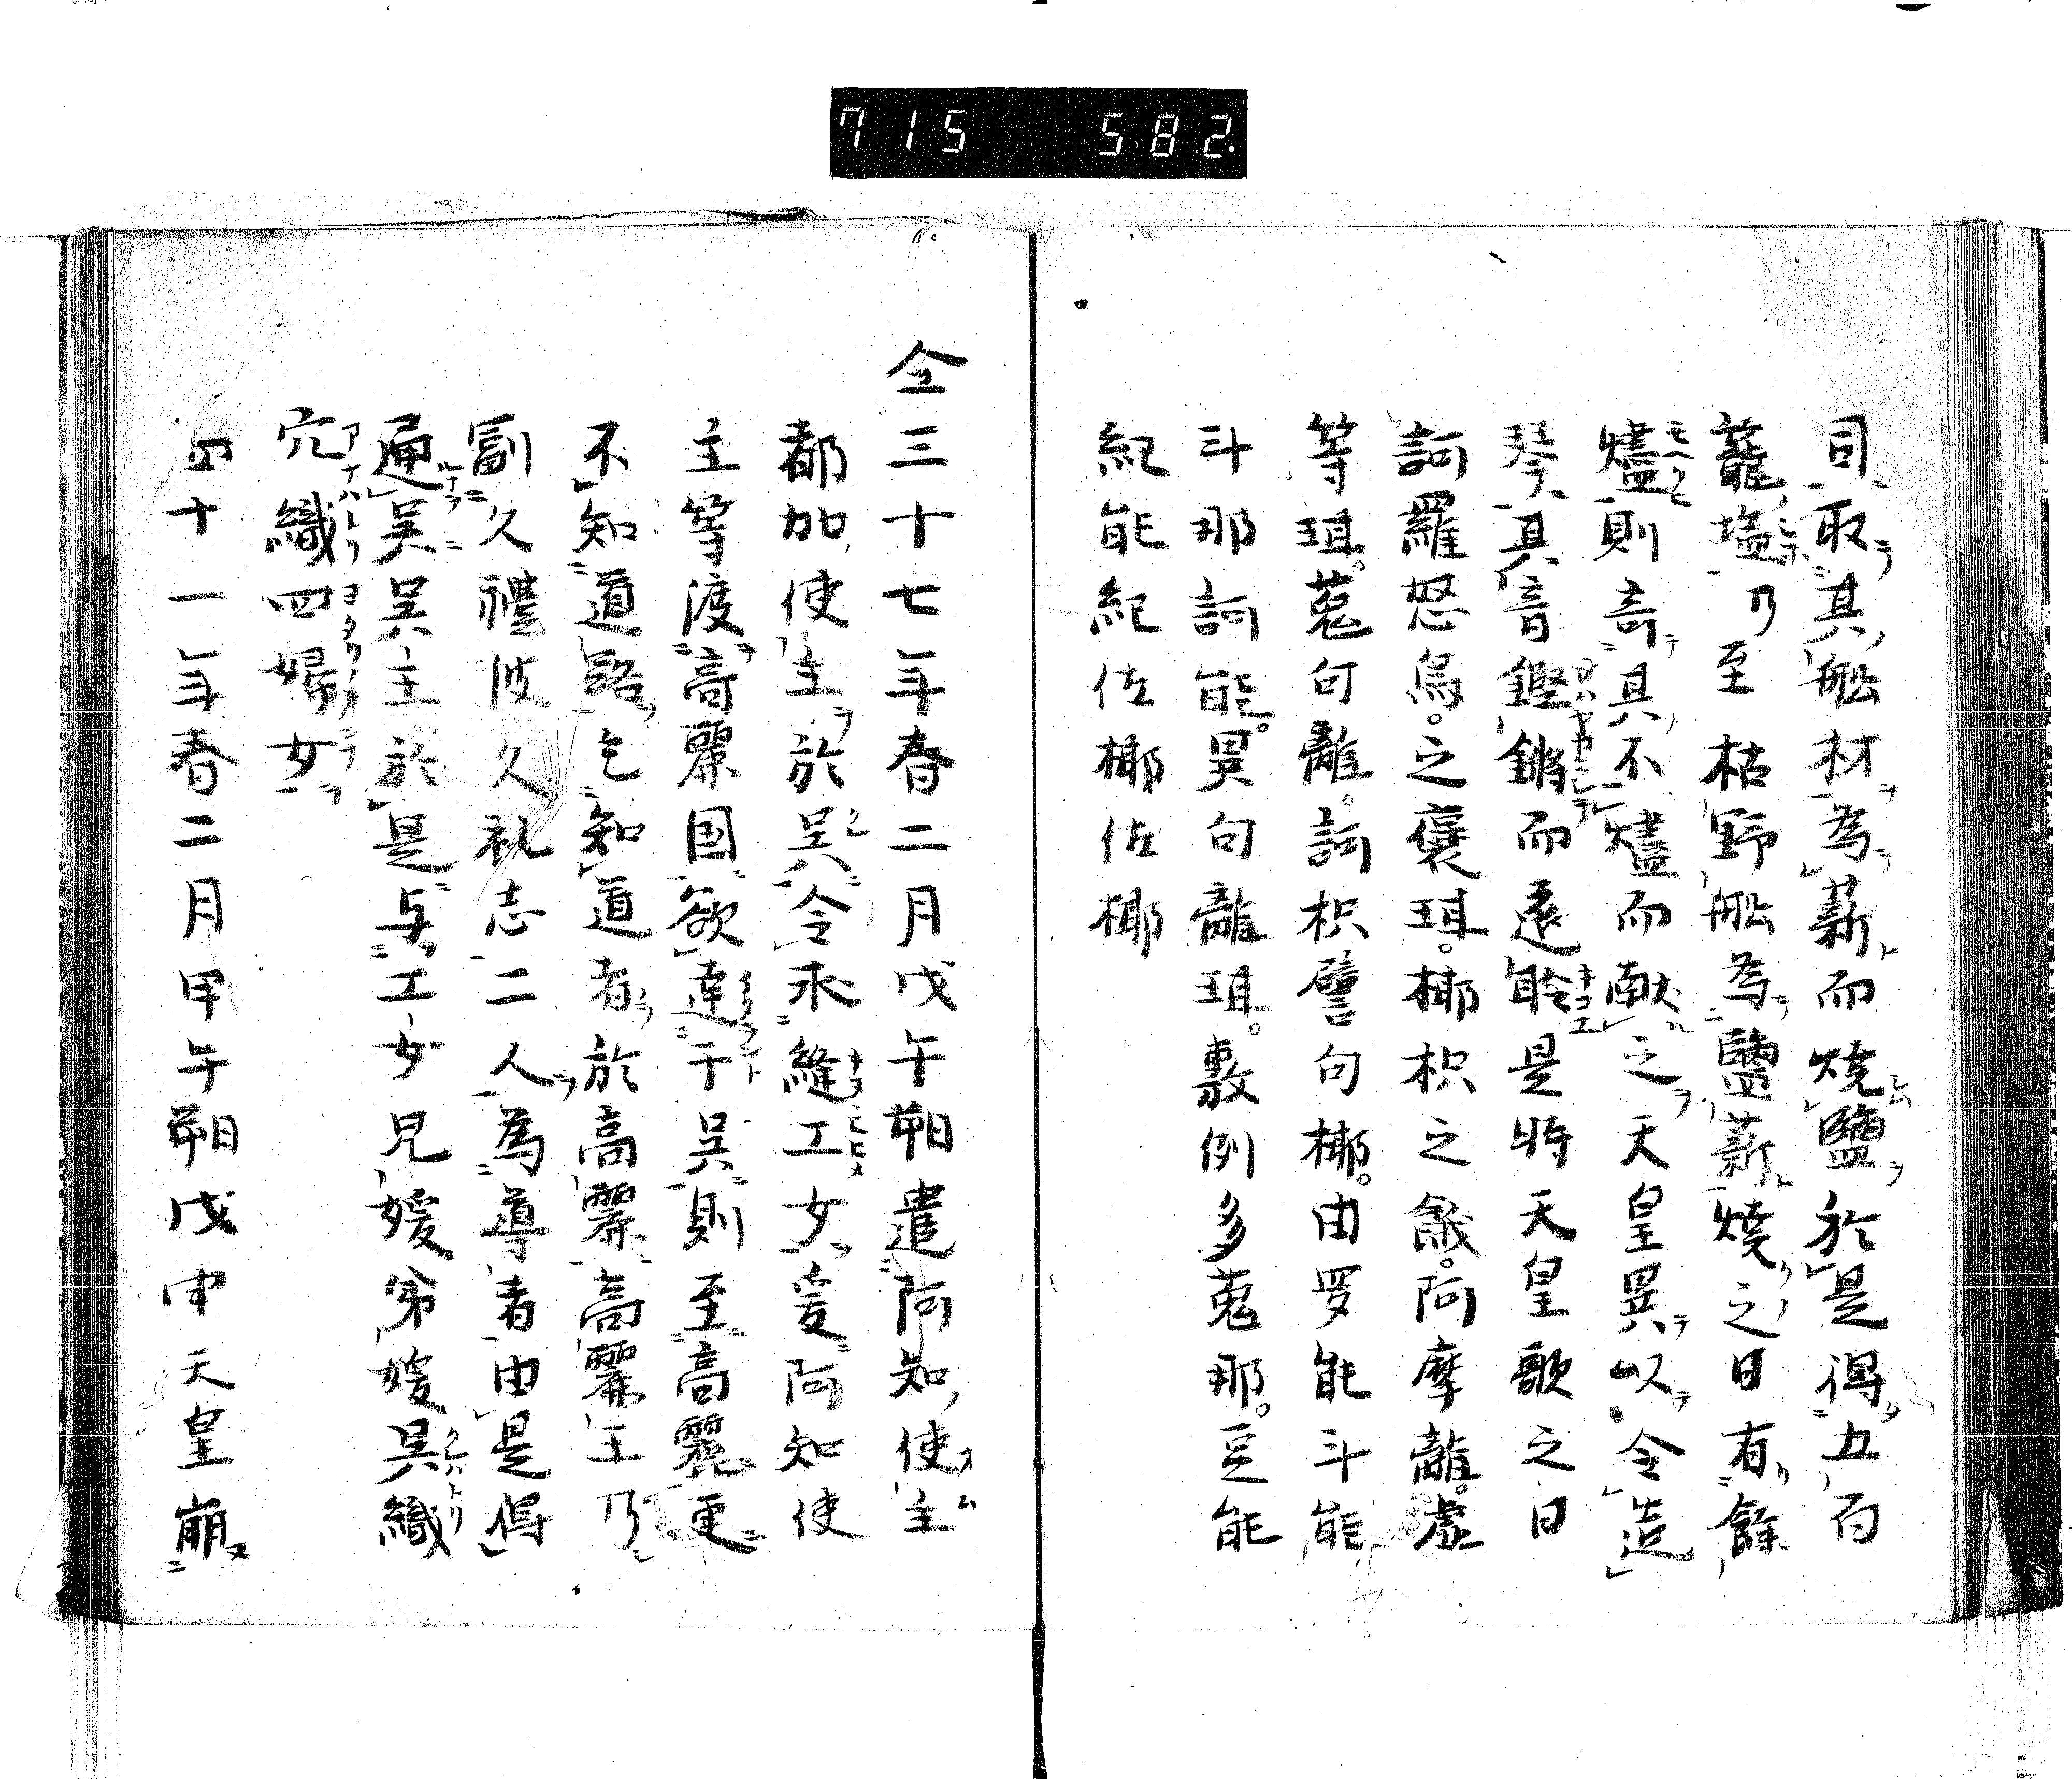 715 582
司取其舩材為薪而焼鹽於是得五百
蘢塩乃至枯野舩為鹽薪焼之日有餘
燼則奇其不燼而献之天皇異以令造
琴其音鏗鏘而遠聆是時天皇歌之曰
訶羅怒烏。之褒珥。椰枳之餓。阿摩離。虚
等珥。菟句離。訶枳譬句椰。由罗能斗能
斗那訶能。異句離珥。敷例多菟那。豆能
紀能紀佐椰佐椰
仝三十七年春二月戊午朔遣阿知使主
都加使主於呉令求縫工女爰阿知使
主等渡高麗国欲達于呉則至高麗更
不知道路乞知道者於高麗高麗王乃
副久禮波久礼志二人為導者由是得
通呉呉主於是与工女兄媛弟媛呉織
穴織四婦女
四十一年春二月甲午朔戊申天皇崩